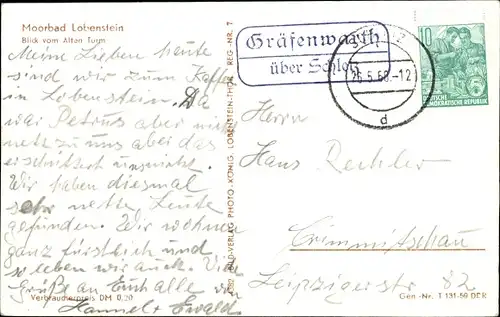 Moorbad Lobenstein
Blick vom Alten Turm
Meine Lieben heute
sind wir zum Kaffee
in Lobenstein. Da
war Petrus aber nicht
nett zu uns aber das
erschüttert uns nicht.
Wir haben diesmal
sehr nette Leute
gefunden. Wir wohnen
ganz fürstlich und
so leben wir auch. Viele
Grüße an Euch alle von
Hannel + Ewald
Verbraucherpreis DM 0,20
BILD-VERLAG PHOTO-KÖNIG, LOBENSTEIN-THÜR. REG.-NR. 7
Gräfenwarth
über Schleiz
26.5.60.-12
d
10
DEUTSCHE
DEMOKRATISCHE REPUBLIK
Herrn
Hans Rechler
Crimmitschau
Leipzigerstr 82
Gen.-Nr. I 131-59 DDR